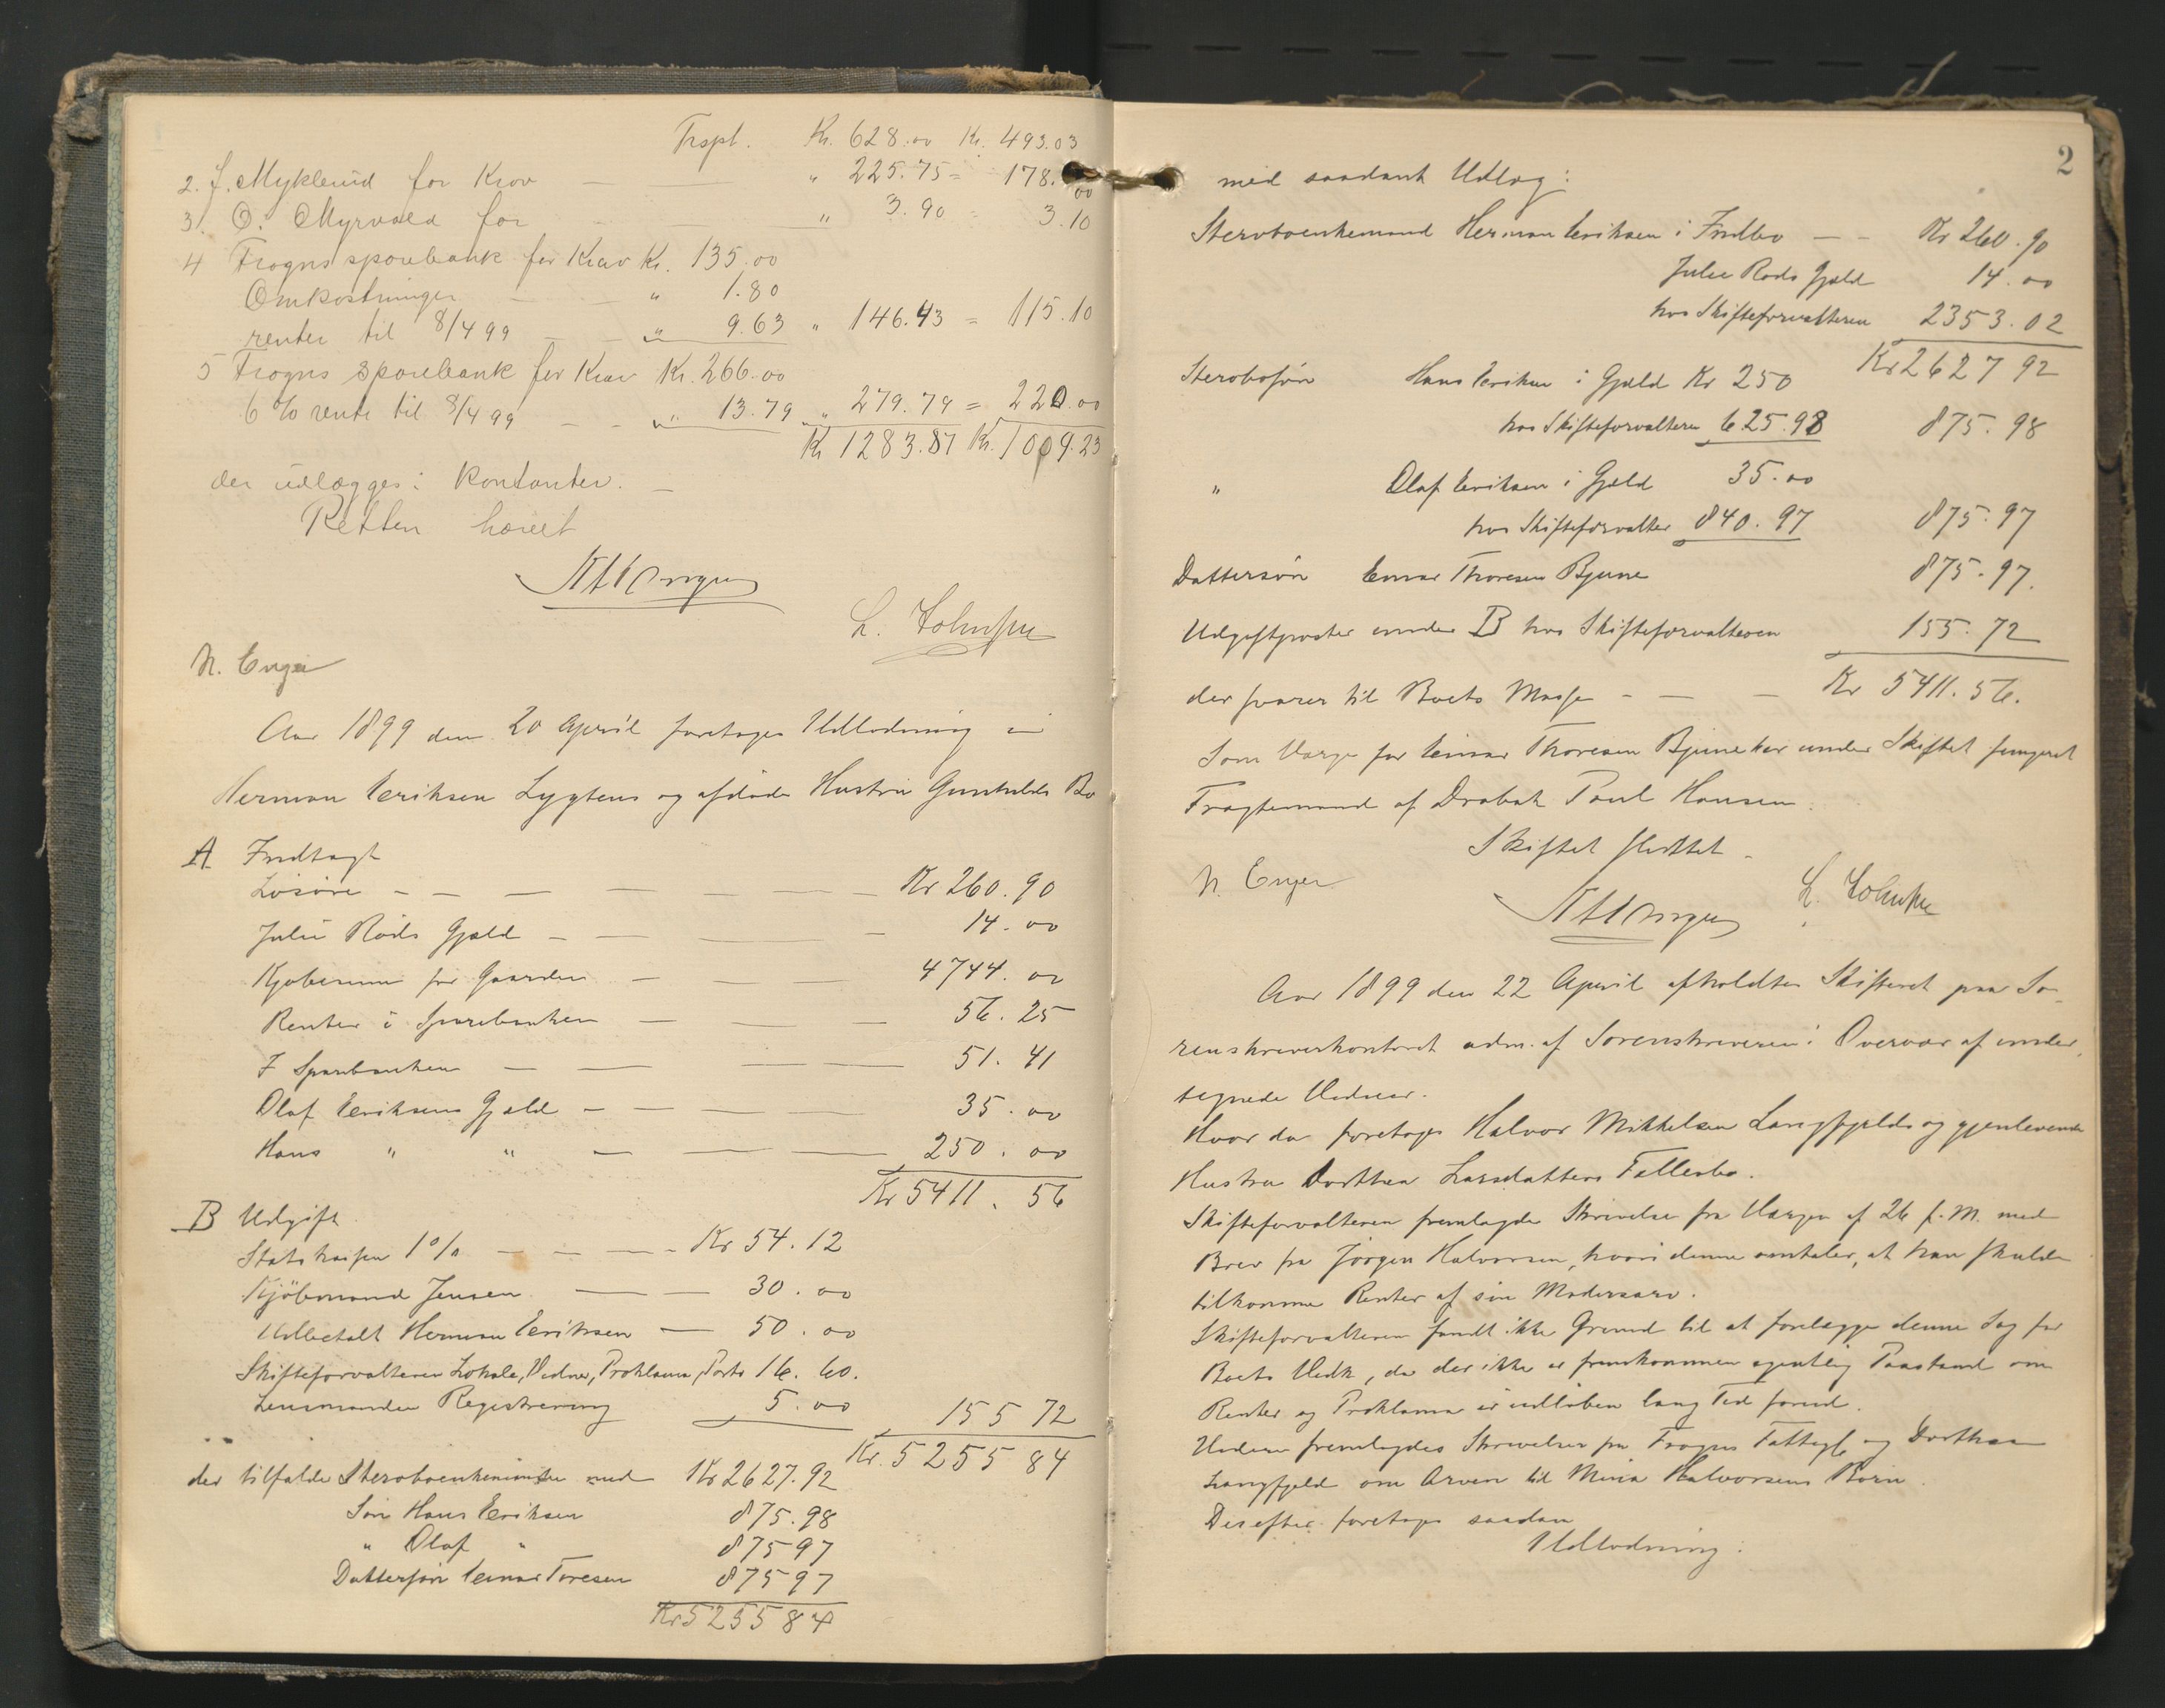 Trspt. Kr. 628.00 Kr. 493.03
2. J. Myklerud for Krav — " 225.75 = 178.
3. O. Myrvold for — " 3.90 = 3.10
4 Frogns sparebank for Krav Kr. 135.00
Omkostninger — " 1.80
renter til 8/4 99 — " 9.63 " 146.43 = 115.10
5 Frogns Sparebank for Krav Kr. 266.00
6 % rente til 8/4 99 — " 13.79 " 279.79 = 220.00
Kr 1283.87 Kr. 1009.23
der udlægges i Kontanter. —
Retten hævet
L. Johnsen
N. Enger
Aar 1899 den 20 April foretages Udlodning i
Herman Eriksen Lygtens og afdøde Hustru Gunhilds Bo
A Indtægt
Løsøre — Kr 260.90
Julie Røds Gjæld — 14.00
Kjøbesum for Gaarden — 4744.00
Renter i Sparebanken — 56.25
I Sparebanken — 51.41
Olaf Eriksens Gjæld — 35.00
Hans " " — 250.00
Kr 5411.56
B Udgift
Statskassen 1 % — Kr 54.12
Kjöbmand Jensen — 30.00
Udbetalt Herman Eriksen — 50.00
Skifteforvalteren Lokale, Vidner, Proklama, Porto 16.60.
Lensmanden Registrering 5.00 155 72
Kr. 5255 84
der tilfalder Sterboenkemanden med Kr 2627.92
Søn Hans Eriksen 875.98
" Olaf " 875 97
Dattersøn Einar Toresen 875 97
Kr 5255 84
2
med saadant Udlæg:
Sterboenkemand Herman Eriksen i Indbo — Kr 260.90
Julie Røds Gjæld 14.00
hos Skifteforvalteren 2353.02
Kr 2627 92
Sterbosøn Hans Eriksen i Gjæld Kr 250
hos Skifteforvalteren 625.98 875.98
" Olaf Eriksen i Gjæld 35.00
hos Skifteforvalter 840.97 875.97
Dattersøn Einar Thoresen Bjune 875.97.
Udgiftsposter under B hos Skifteforvalteren 155.72
der svarer til Boets Masse — Kr 5411.56.
Som Værge for Einar Thoresen Bjune har under Skiftet fungeret
Fragtemand af Drøbak Paul Hansen.
Skiftet sluttet.
N. Enger
L. Johnsen
Aar 1899 den 22 April afholdtes Skifteret paa So-
renskriverkontoret adm. af Sorenskriveren i Overvær af under-
tegnede Vidner.
Hvor da foretoges Halvor Mikkelsen Langfjelds og gjenlevende
Hustru Dorthea Larsdatters Fællesbo.
Skifteforvalteren fremlagde Skrivelse fra Værgen af 26 f. M. med
Brev fra Jørgen Halvorsen, hvori denne omtaler, at han skulde
tilkomme Renter af sin Mødrearv.
Skifteforvalteren fandt ikke Grund til at forelægge denne Sag for
Boets Vedk, da der ikke er fremkommen egentlig Paastand om
Renter og Proklama er udløben lang Tid forud.
Videre fremlagdes Skrivelser fra Frogns Fattigk. og Dorthea
Langfjeld om Arven til Mina Halvorsens Børn.
Derefter foretoges saadan
Udlodning: